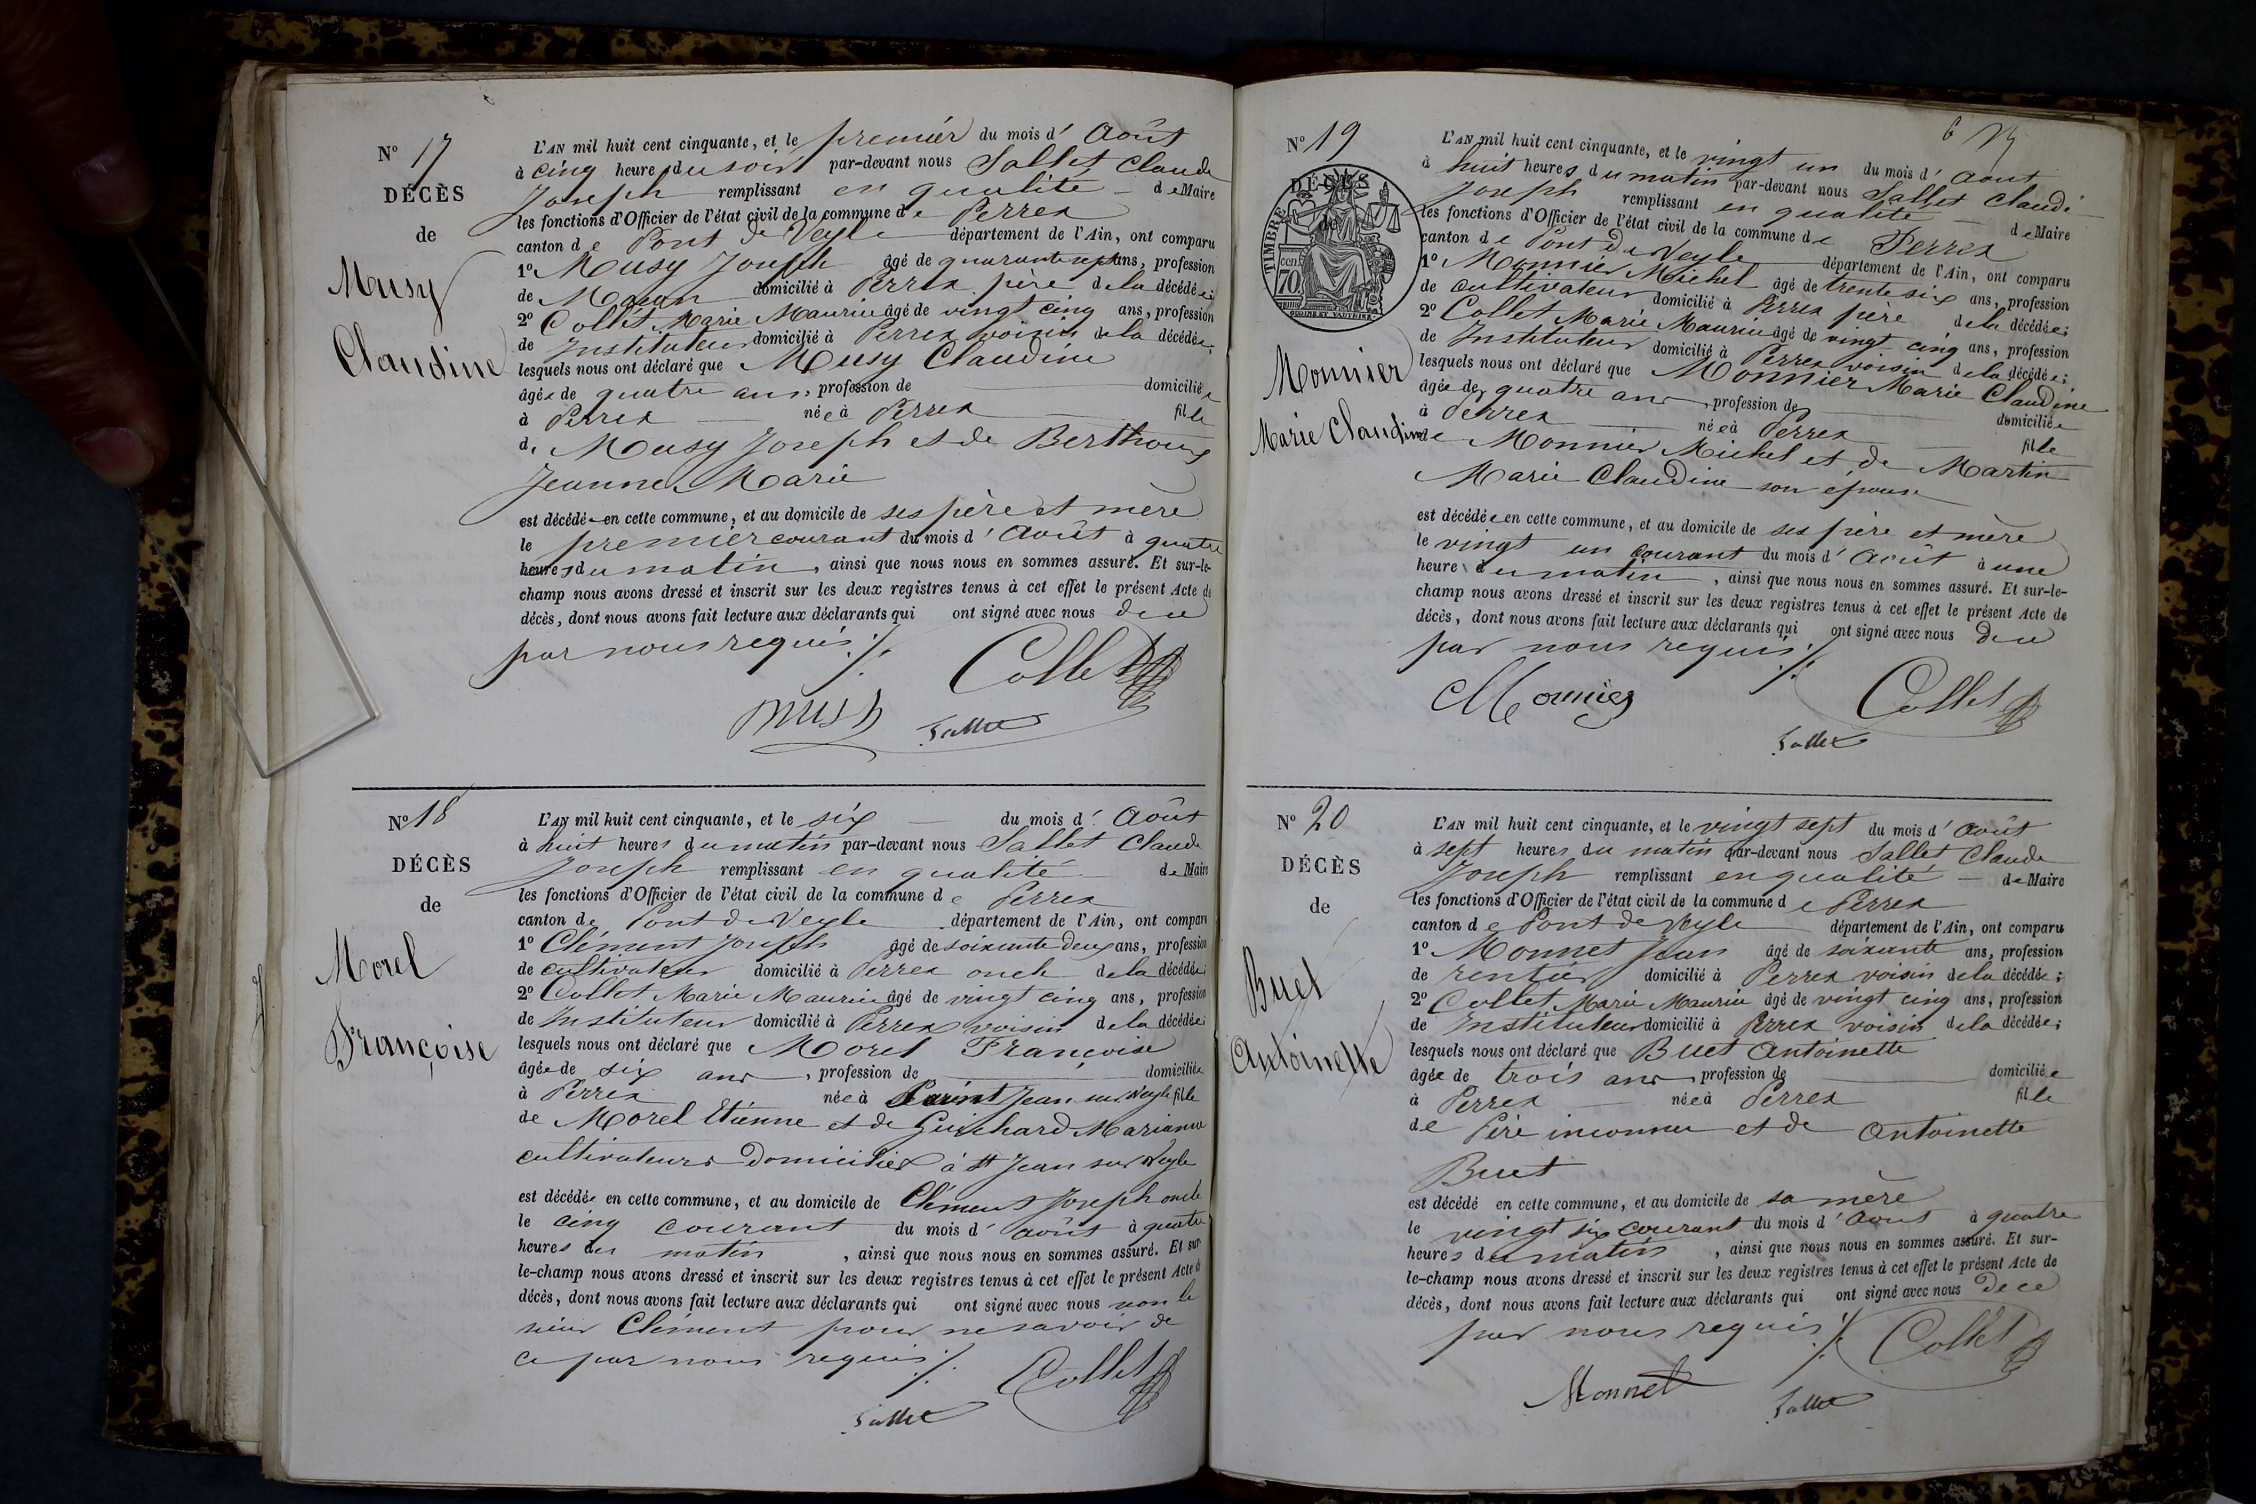 N° 17
DÉCÈS
de
Musy
Claudine
L'AN mil huit cent cinquante, et le premier du mois d' Août
à cinq heures du soir par-devant nous Sallet Claude
Joseph remplissant en qualité de Maire
les fonctions d'Officier de l'état civil de la commune de Perrex
canton de Pont de Veyle département de l'Ain, ont comparu
1° Musy Joseph âgé de quarante sept ans, profession
de Maçon domicilié à Perrex père de la décédée;
2° Collet Marie Maurice âgé de vingt cinq ans, profession
de Instituteur domicilié à Perrex voisin de la décédée;
lesquels nous ont déclaré que Musy Claudine
âgée de quatre ans, profession de domiciliée
à Perrex née à Perrex fille
de Musy Joseph et de Berthoux
Jeanne Marie
est décédée en cette commune, et au domicile de ses père et mère
le premier courant du mois d' Août à quatre
heures du matin, ainsi que nous nous en sommes assuré. Et sur-le-
champ nous avons dressé et inscrit sur les deux registres tenus à cet effet le présent Acte de
décès, dont nous avons fait lecture aux déclarants qui ont signé avec nous de ce
par nous requis ./.
Collet
musy
Sallet
N° 18
DÉCÈS
de
Morel
Françoise
L'AN mil huit cent cinquante, et le six du mois d' Août
à huit heures du matin par-devant nous Sallet Claude
Joseph remplissant en qualité de Maire
les fonctions d'Officier de l'état civil de la commune de Perrex
canton de Pont de Veyle département de l'Ain, ont comparu
1° Clément Joseph âgé de soixante deux ans, profession
de cultivateur domicilié à Perrex oncle de la décédée;
2° Collet Marie Maurice âgé de vingt cinq ans, profession
de Instituteur domicilié à Perrex voisin de la décédée;
lesquels nous ont déclaré que Morel Françoise
âgée de six ans, profession de domiciliée
à Perrex née à Saint Jean sur Veyle fille
de Morel Etienne et de Guichard Marianne
cultivateurs domiciliés à St Jean sur Veyle
est décédée en cette commune, et au domicile de Clément Joseph oncle
le cinq courant du mois d' août à quatre
heures du matin, ainsi que nous nous en sommes assuré. Et sur-
le-champ nous avons dressé et inscrit sur les deux registres tenus à cet effet le présent Acte de
décès, dont nous avons fait lecture aux déclarants qui ont signé avec nous non le
sieur Clément pour ne savoir de
ce par nous requis ./.
Collet
Sallet
N° 19
DÉCÈS
de
TIMBRE
70 cen.
Monnier
Marie Claudine
L'AN mil huit cent cinquante, et le vingt un du mois d' Août
à huit heures du matin par-devant nous Sallet Claude
Joseph remplissant en qualité de Maire
les fonctions d'Officier de l'état civil de la commune de Perrex
canton de Pont de Veyle département de l'Ain, ont comparu
1° Monnier Michel âgé de trente six ans, profession
de cultivateur domicilié à Perrex père de la décédée;
2° Collet Marie Maurice âgé de vingt cinq ans, profession
de Instituteur domicilié à Perrex voisin de la décédée;
lesquels nous ont déclaré que Monnier Marie Claudine
âgée de quatre ans, profession de domiciliée
à Perrex née à Perrex fille
de Monnier Michel et de Martin
Marie Claudine son épouse
est décédée en cette commune, et au domicile de ses père et mère
le vingt un courant du mois d' Août à une
heure du matin, ainsi que nous nous en sommes assuré. Et sur-le-
champ nous avons dressé et inscrit sur les deux registres tenus à cet effet le présent Acte de
décès, dont nous avons fait lecture aux déclarants qui ont signé avec nous de ce
par nous requis ./.
Monnier
Collet
Sallet
N° 20
DÉCÈS
de
Buet
Antoinette
L'AN mil huit cent cinquante, et le vingt sept du mois d' Août
à sept heures du matin par-devant nous Sallet Claude
Joseph remplissant en qualité de Maire
les fonctions d'Officier de l'état civil de la commune de Perrex
canton de Pont de Veyle département de l'Ain, ont comparu
1° Monnet Jean âgé de soixante ans, profession
de rentier domicilié à Perrex voisin de la décédée;
2° Collet Marie Maurice âgé de vingt cinq ans, profession
de Instituteur domicilié à Perrex voisin de la décédée;
lesquels nous ont déclaré que Buet Antoinette
âgée de trois ans, profession de domiciliée
à Perrex née à Perrex fille
de Père inconnu et de Antoinette
Buet
est décédé en cette commune, et au domicile de sa mère
le vingt six courant du mois d' Août à quatre
heures du matin, ainsi que nous nous en sommes assuré. Et sur-
le-champ nous avons dressé et inscrit sur les deux registres tenus à cet effet le présent Acte de
décès, dont nous avons fait lecture aux déclarants qui ont signé avec nous de ce
par nous requis ./.
Collet
Monnet
Sallet